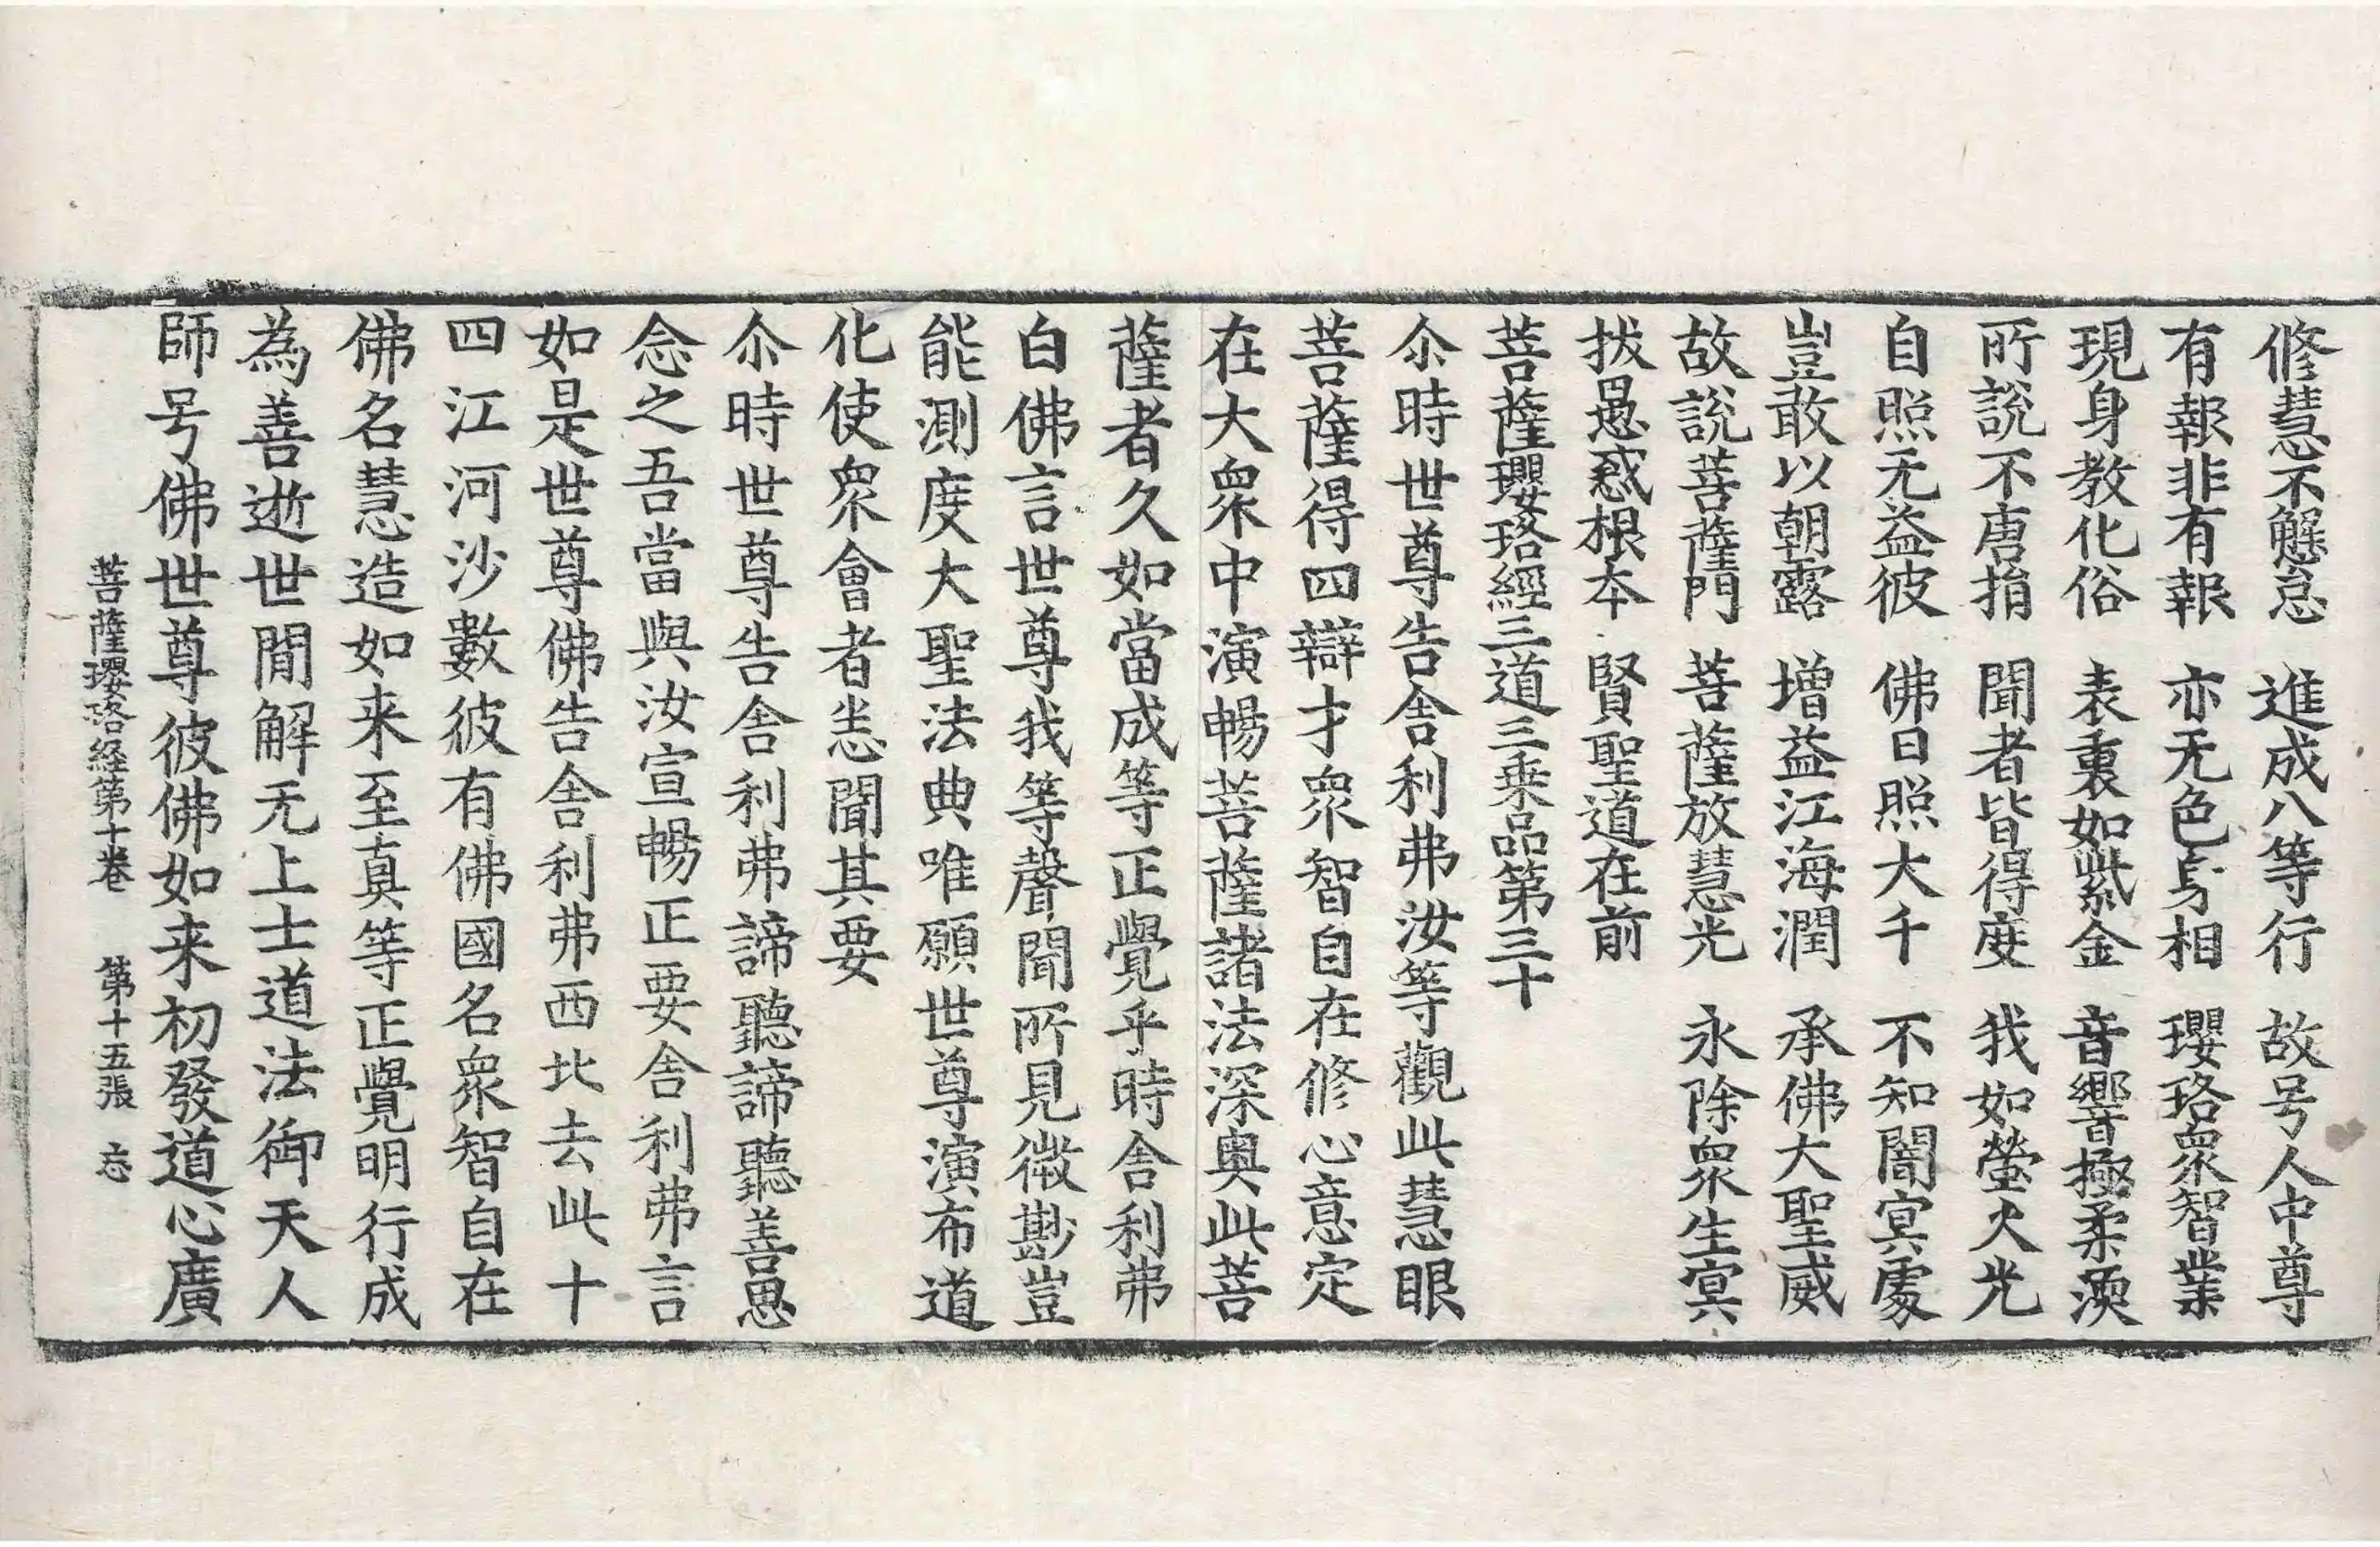 修慧不懈怠　進成八等行　故号人中尊
有報非有報　亦无色身相　瓔珞衆智業
現身教化俗　表裏如紫金　音響極柔濡
所說不唐捐　聞者皆得度　我如螢火光
自照无益彼　佛日照大千　不知闇冥處
豈敢以朝露　增益江海潤　承佛大聖威
故說菩薩門　菩薩放慧光　永除衆生冥
拔愚惑根本　賢聖道在前
菩薩瓔珞經三道三乘品第三十
尒時世尊告舍利弗汝等觀此慧眼
菩薩得四辯才衆智自在修心意定
在大衆中演暢菩薩諸法深奧此菩
薩者久如當成等正覺乎時舍利弗
白佛言世尊我等聲聞所見微尠豈
能測度大聖法典唯願世尊演布道
化使衆會者悉聞其要
尒時世尊告舍利弗諦聽諦聽善思
念之吾當與汝宣暢正要舍利弗言
如是世尊佛告舍利弗西北去此十
四江河沙數彼有佛國名衆智自在
佛名慧造如来至真等正覺明行成
為善逝世間解无上士道法御天人
師号佛世尊彼佛如来初發道心廣
菩薩瓔珞経第十卷　第十五張　忘